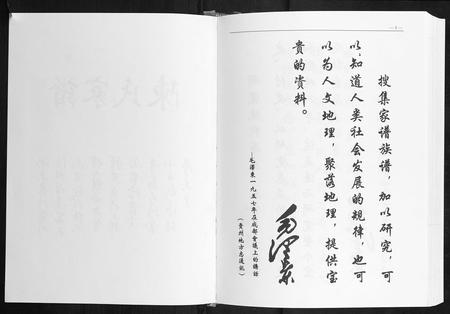 搜集家谱族谱，加以研究，可
以知道人类社会发展的规律，也可
以为人文地理，聚落地理，提供宝
贵的资料。
毛澤東
—毛澤東一九五七年在成都會議上的講話
(貴州地方志通訊)